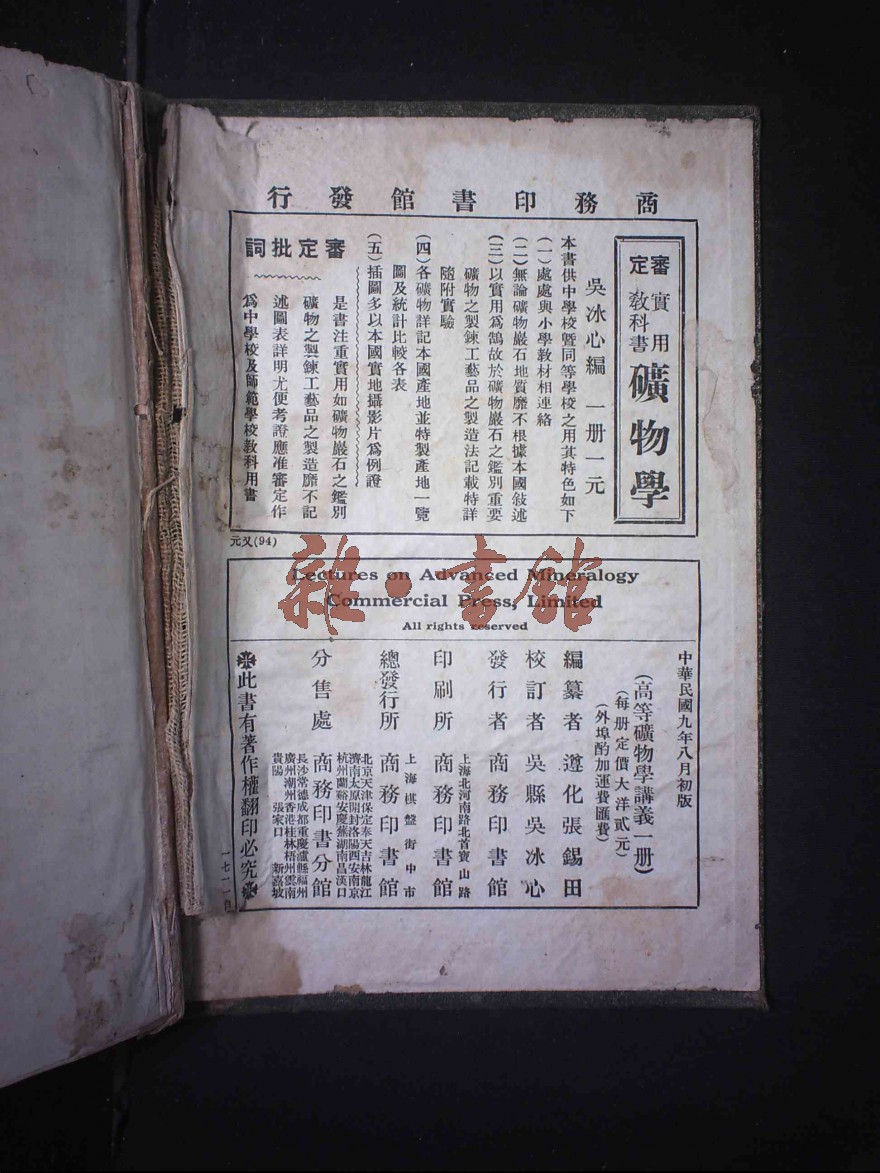 商務印書館發行
審定
實用教科書
礦物學
吳冰心編 一册一元
本書供中學校暨同等學校之用其特色如下
(一)處處與小學教材相連絡
(二)無論礦物巖石地質靡不根據本國敍述
(三)以實用爲鵠故於礦物巖石之鑑別重要
礦物之製鍊工藝品之製造法記載特詳
隨附實驗
(四)各礦物詳記本國產地並特製產地一覽
圖及統計比較各表
(五)插圖多以本國實地攝影片爲例證
審定批詞
是書注重實用如礦物巖石之鑑別
礦物之製鍊工藝品之製造靡不記
述圖表詳明尤便考證應准審定作
爲中學校及師範學校教科用書
元又(94)
Lectures on Advanced Mineralogy
Commercial Press, Limited
All rights reserved
雜·書館
中華民國九年八月初版
(高等礦物學講義一册)
(每册定價大洋貳元)
(外埠酌加運費匯費)
編纂者 遵化張錫田
校訂者 吳縣吳冰心
發行者 商務印書館
上海北河南路北首寶山路
印刷所 商務印書館
上海棋盤街中市
總發行所 商務印書館
分售處 商務印書分館
北京天津保定奉天吉林龍江
濟南太原開封洛陽西安南京
杭州蘭谿安慶蕪湖南昌漢口
長沙常德成都重慶瀘縣福州
廣州潮州香港桂林梧州雲南
貴陽 張家口 新嘉坡
此書有著作權翻印必究